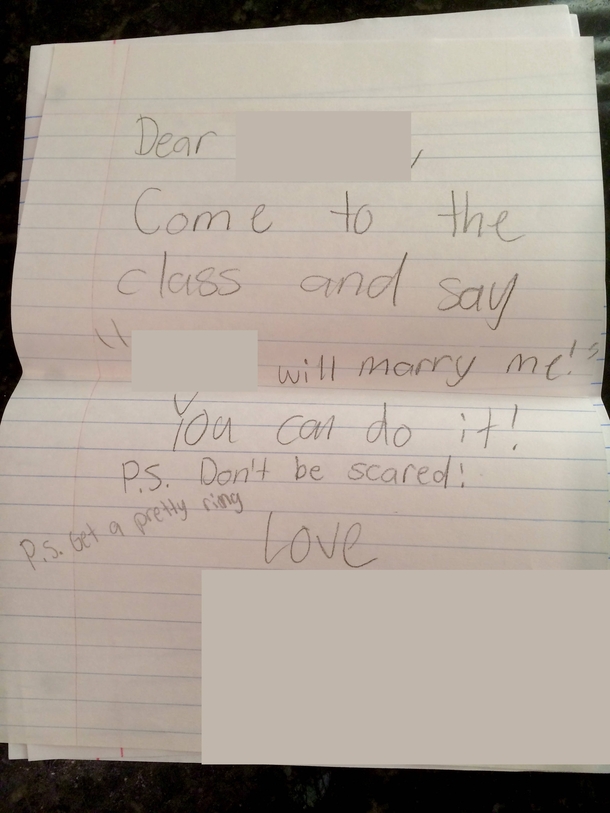 Dear ,
Come to the
class and say
" will marry me!"
You can do it!
P.S. Don't be scared!
P.S. Get a pretty ring
Love